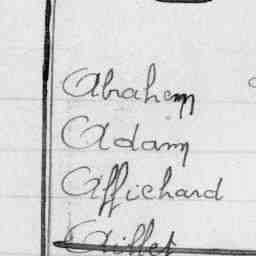 Abraham
Adam
Affichard
Aillet